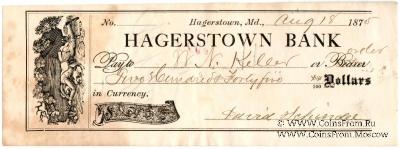 No. Hagerstown, Md., Aug 18 1875
HAGERSTOWN BANK
Pay to W. N. Keller or Bearer order
Two Hundred Forty five 99/100 Dollars
in Currency.
www.CoinsFrom.Ru
© CoinsFrom.Ru - Moscow